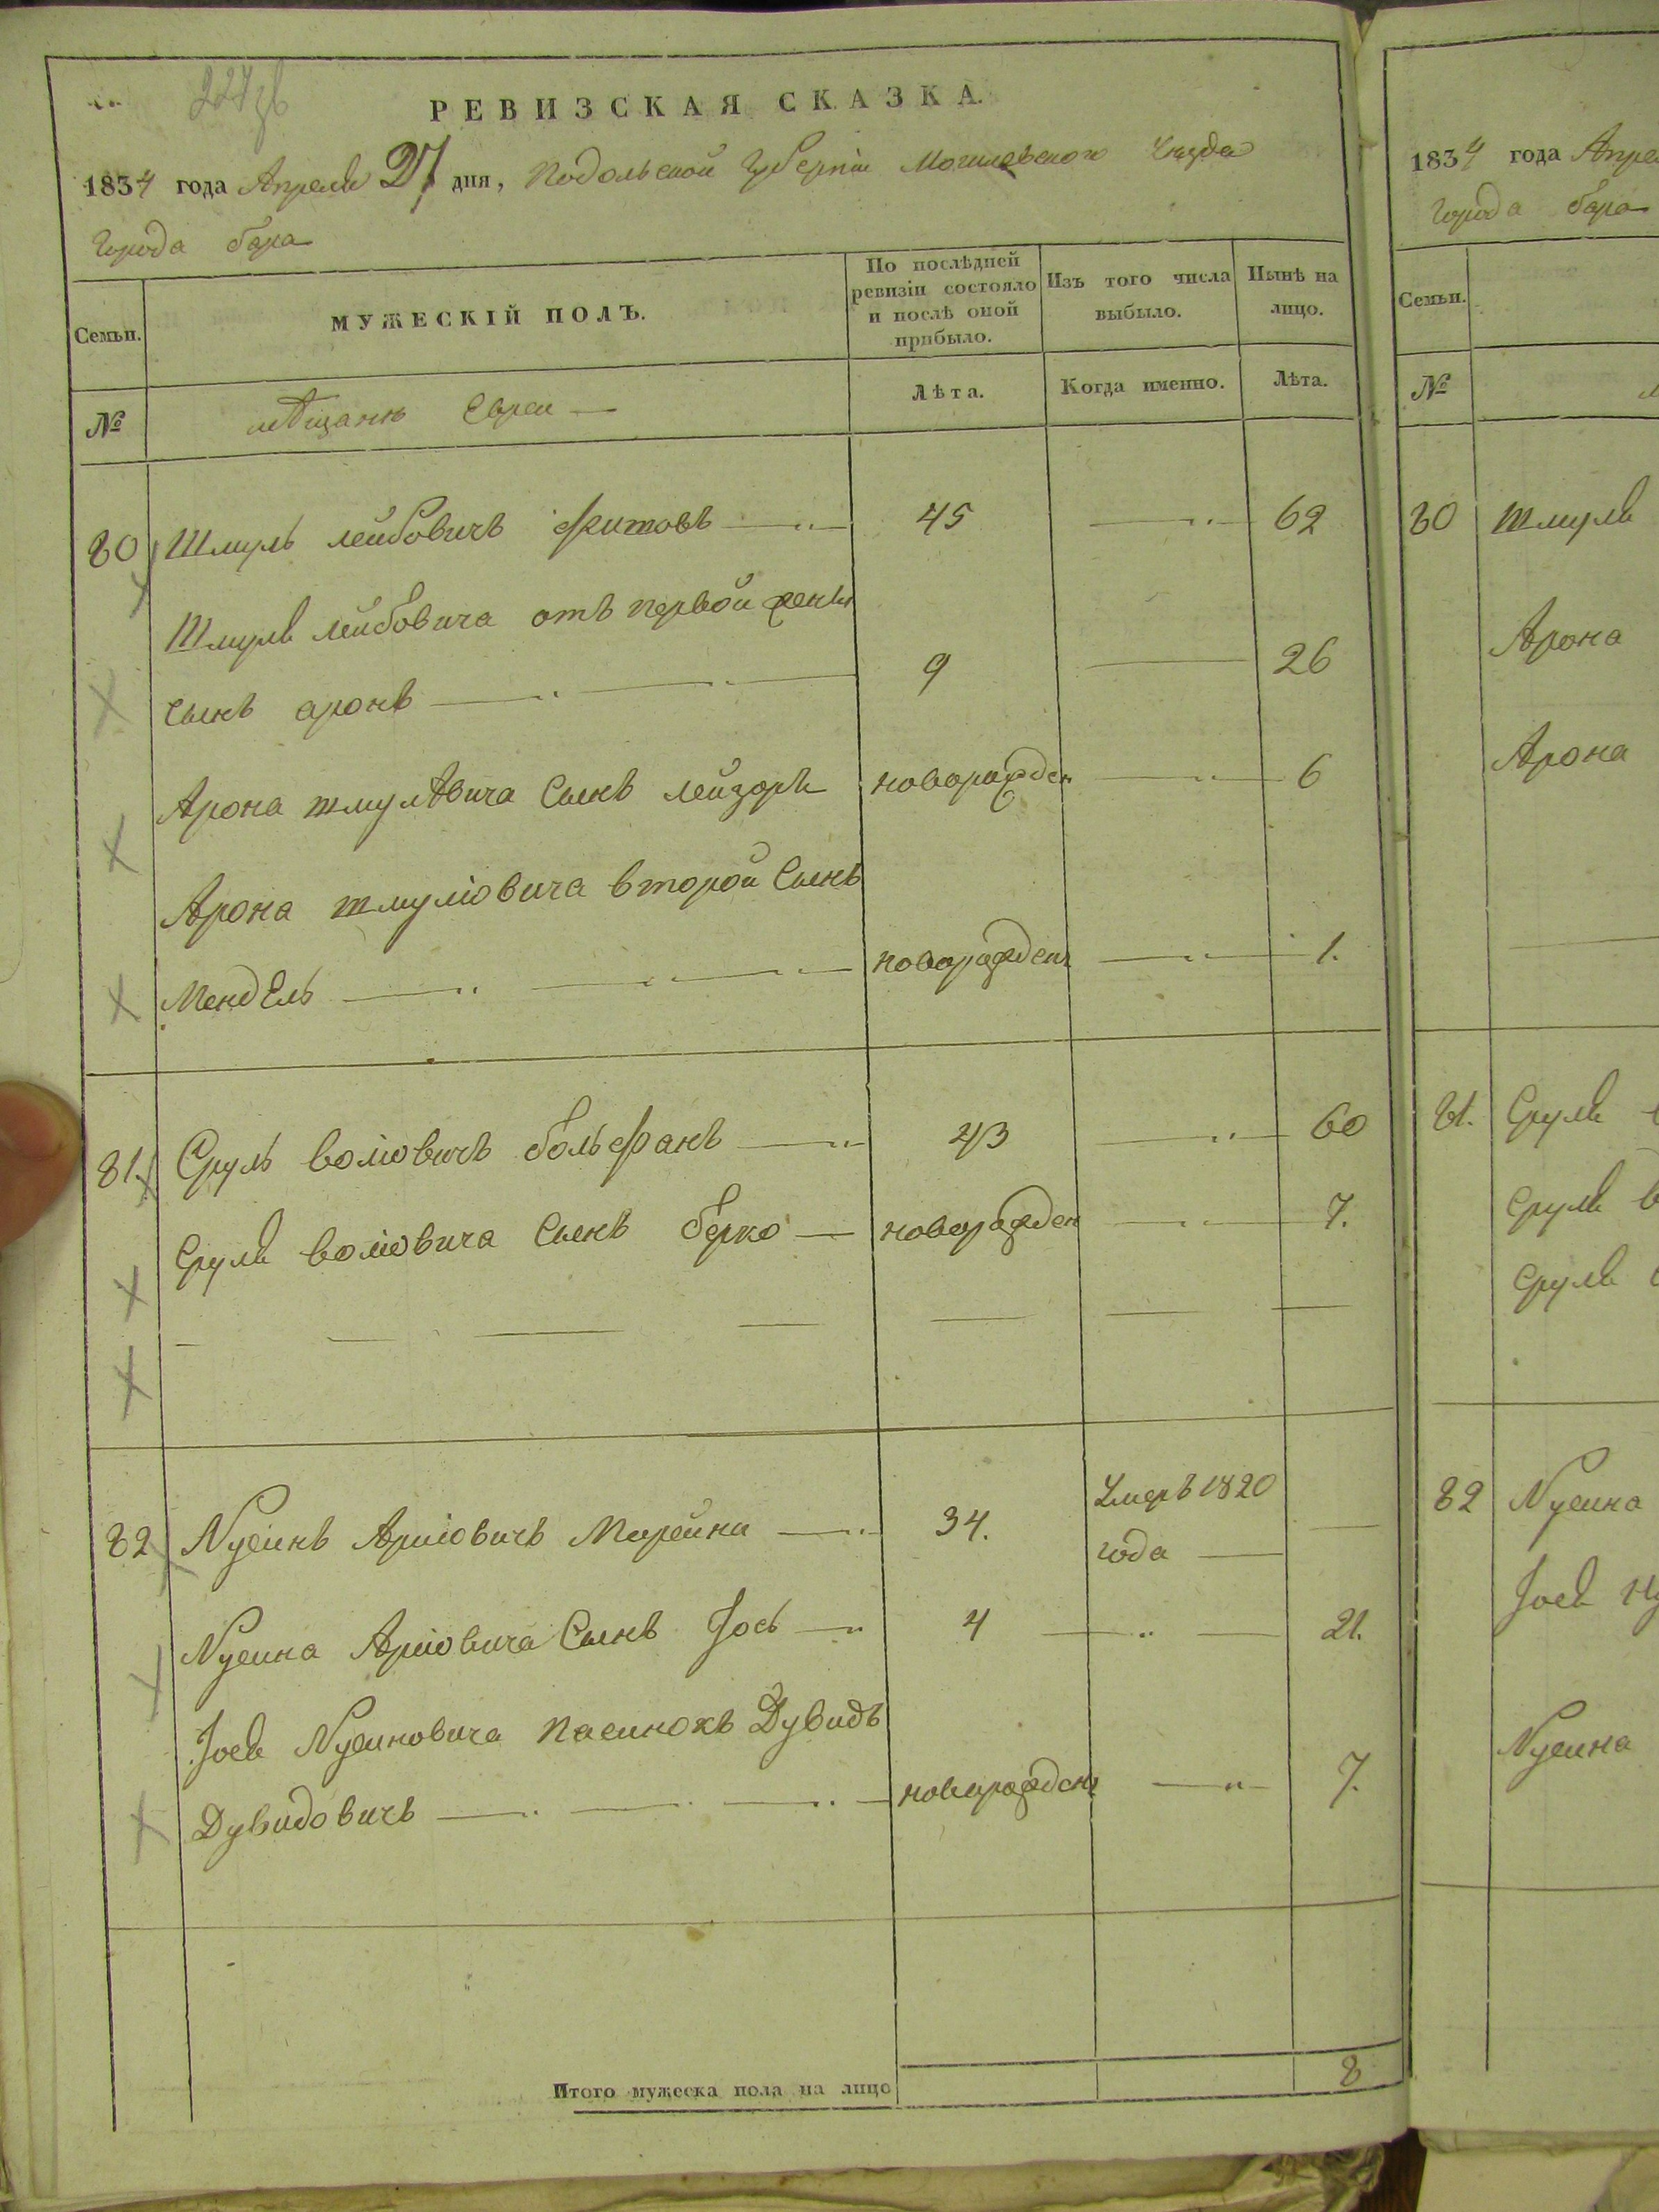 РЕВИЗСКАЯ СКАЗКА.
1834 года Апреля 27 дня, Подольской Губерніи Могилевского Уезда
Города бара
Семьи.
МУЖЕСКІЙ ПОЛЪ.
По послѣдней ревизіи состояло и послѣ оной прибыло.
Изъ того числа выбыло.
Нынѣ на лицо.
№
мѣщанъ Евреи
Лѣта.
Когда именно.
Лѣта.
80 Шмуль лейбовичъ фитовъ 45 62
Шмуля лейбовича отъ первой жены
сынъ аронъ 9 26
Арона шмулѣвича Сынъ лейзоръ новорожден 6
Арона шмуліовича второй Сынъ
Мендель новорожденъ 1.
81. Сруль воліовичъ больфанъ 43 60
Сруля воліовича Сынъ берко новорожден 7.
82 Нусинъ Аріовичъ 34. Умеръ 1820
года
Нусина Аріовича Сынъ Іось 4 21.
Іося Нусиновича пасинокъ Дувидъ
Дувидовичъ новорожденъ 7.
Итого мужеска пола на лицо 8
1834 года Апре
Города бара
Семьи.
№
80 Шмуля
Арона
Арона
81. Сруля
Сруля в
Сруля
82 Нусина
Іося Ну
Нусина